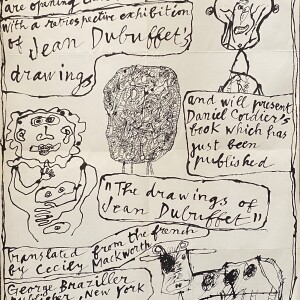 are opening
with a retrospective exhibition
of Jean Dubuffet's
drawings
and will present
Daniel Cordier's
book which has
just been
published
"The drawings of
Jean Dubuffet"
Translated from the french
by Cecily Mackworth
George Braziller
publisher, New York